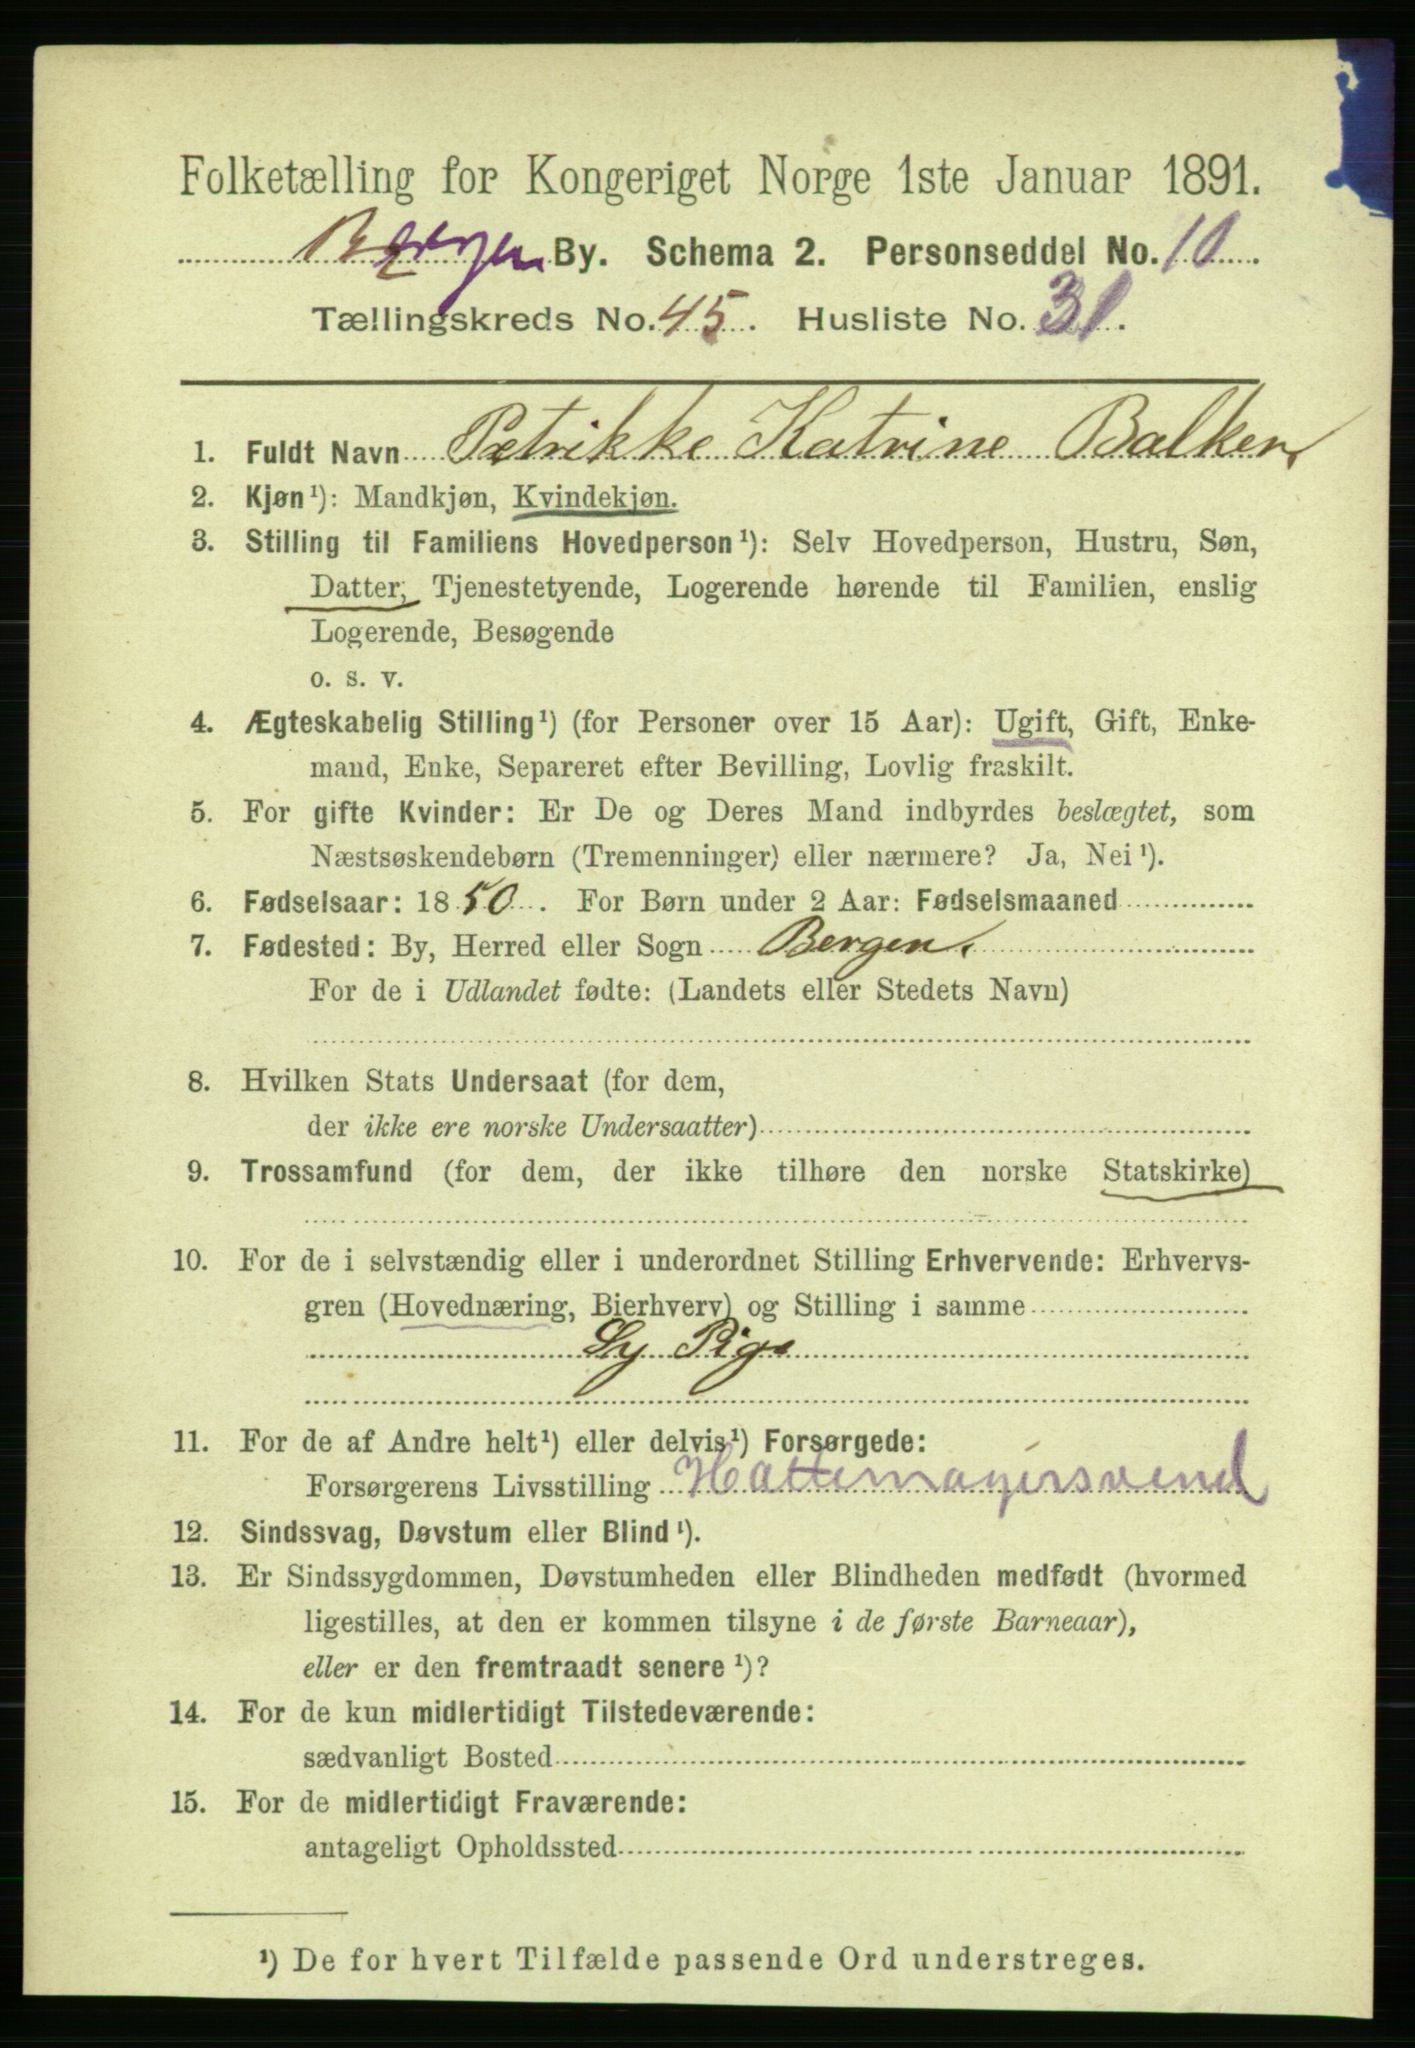 Folketælling for Kongeriget Norge 1ste Januar 1891.
Bergen By. Schema 2. Personseddel No. 10.
Tællingskreds No. 45. Husliste No. 31.
1. Fuldt Navn Petrikke Katrine Balken.
2. Kjøn¹): Mandkjøn, Kvindekjøn.
3. Stilling til Familiens Hovedperson¹): Selv Hovedperson, Hustru, Søn,
Datter, Tjenestetyende, Logerende hørende til Familien, enslig
Logerende, Besøgende
o. s. v.
4. Ægteskabelig Stilling¹) (for Personer over 15 Aar): Ugift, Gift, Enke-
mand, Enke, Separeret efter Bevilling, Lovlig fraskilt.
5. For gifte Kvinder: Er De og Deres Mand indbyrdes beslægtet, som
Næstsøskendebørn (Tremenninger) eller nærmere? Ja, Nei¹).
6. Fødselsaar: 1850. For Børn under 2 Aar: Fødselsmaaned
7. Fødested: By, Herred eller Sogn Bergen.
For de i Udlandet fødte: (Landets eller Stedets Navn)
8. Hvilken Stats Undersaat (for dem,
der ikke ere norske Undersaatter)
9. Trossamfund (for dem, der ikke tilhøre den norske Statskirke)
10. For de i selvstændig eller i underordnet Stilling Erhvervende: Erhvervs-
gren (Hovednæring, Bierhverv) og Stilling i samme
Sy Pige
11. For de af Andre helt¹) eller delvis¹) Forsørgede:
Forsørgerens Livsstilling Hattemagersvend
12. Sindssvag, Døvstum eller Blind¹).
13. Er Sindssygdommen, Døvstumheden eller Blindheden medfødt (hvormed
ligestilles, at den er kommen tilsyne i de første Barneaar),
eller er den fremtraadt senere¹)?
14. For de kun midlertidigt Tilstedeværende:
sædvanligt Bosted
15. For de midlertidigt Fraværende:
antageligt Opholdssted
¹) De for hvert Tilfælde passende Ord understreges.